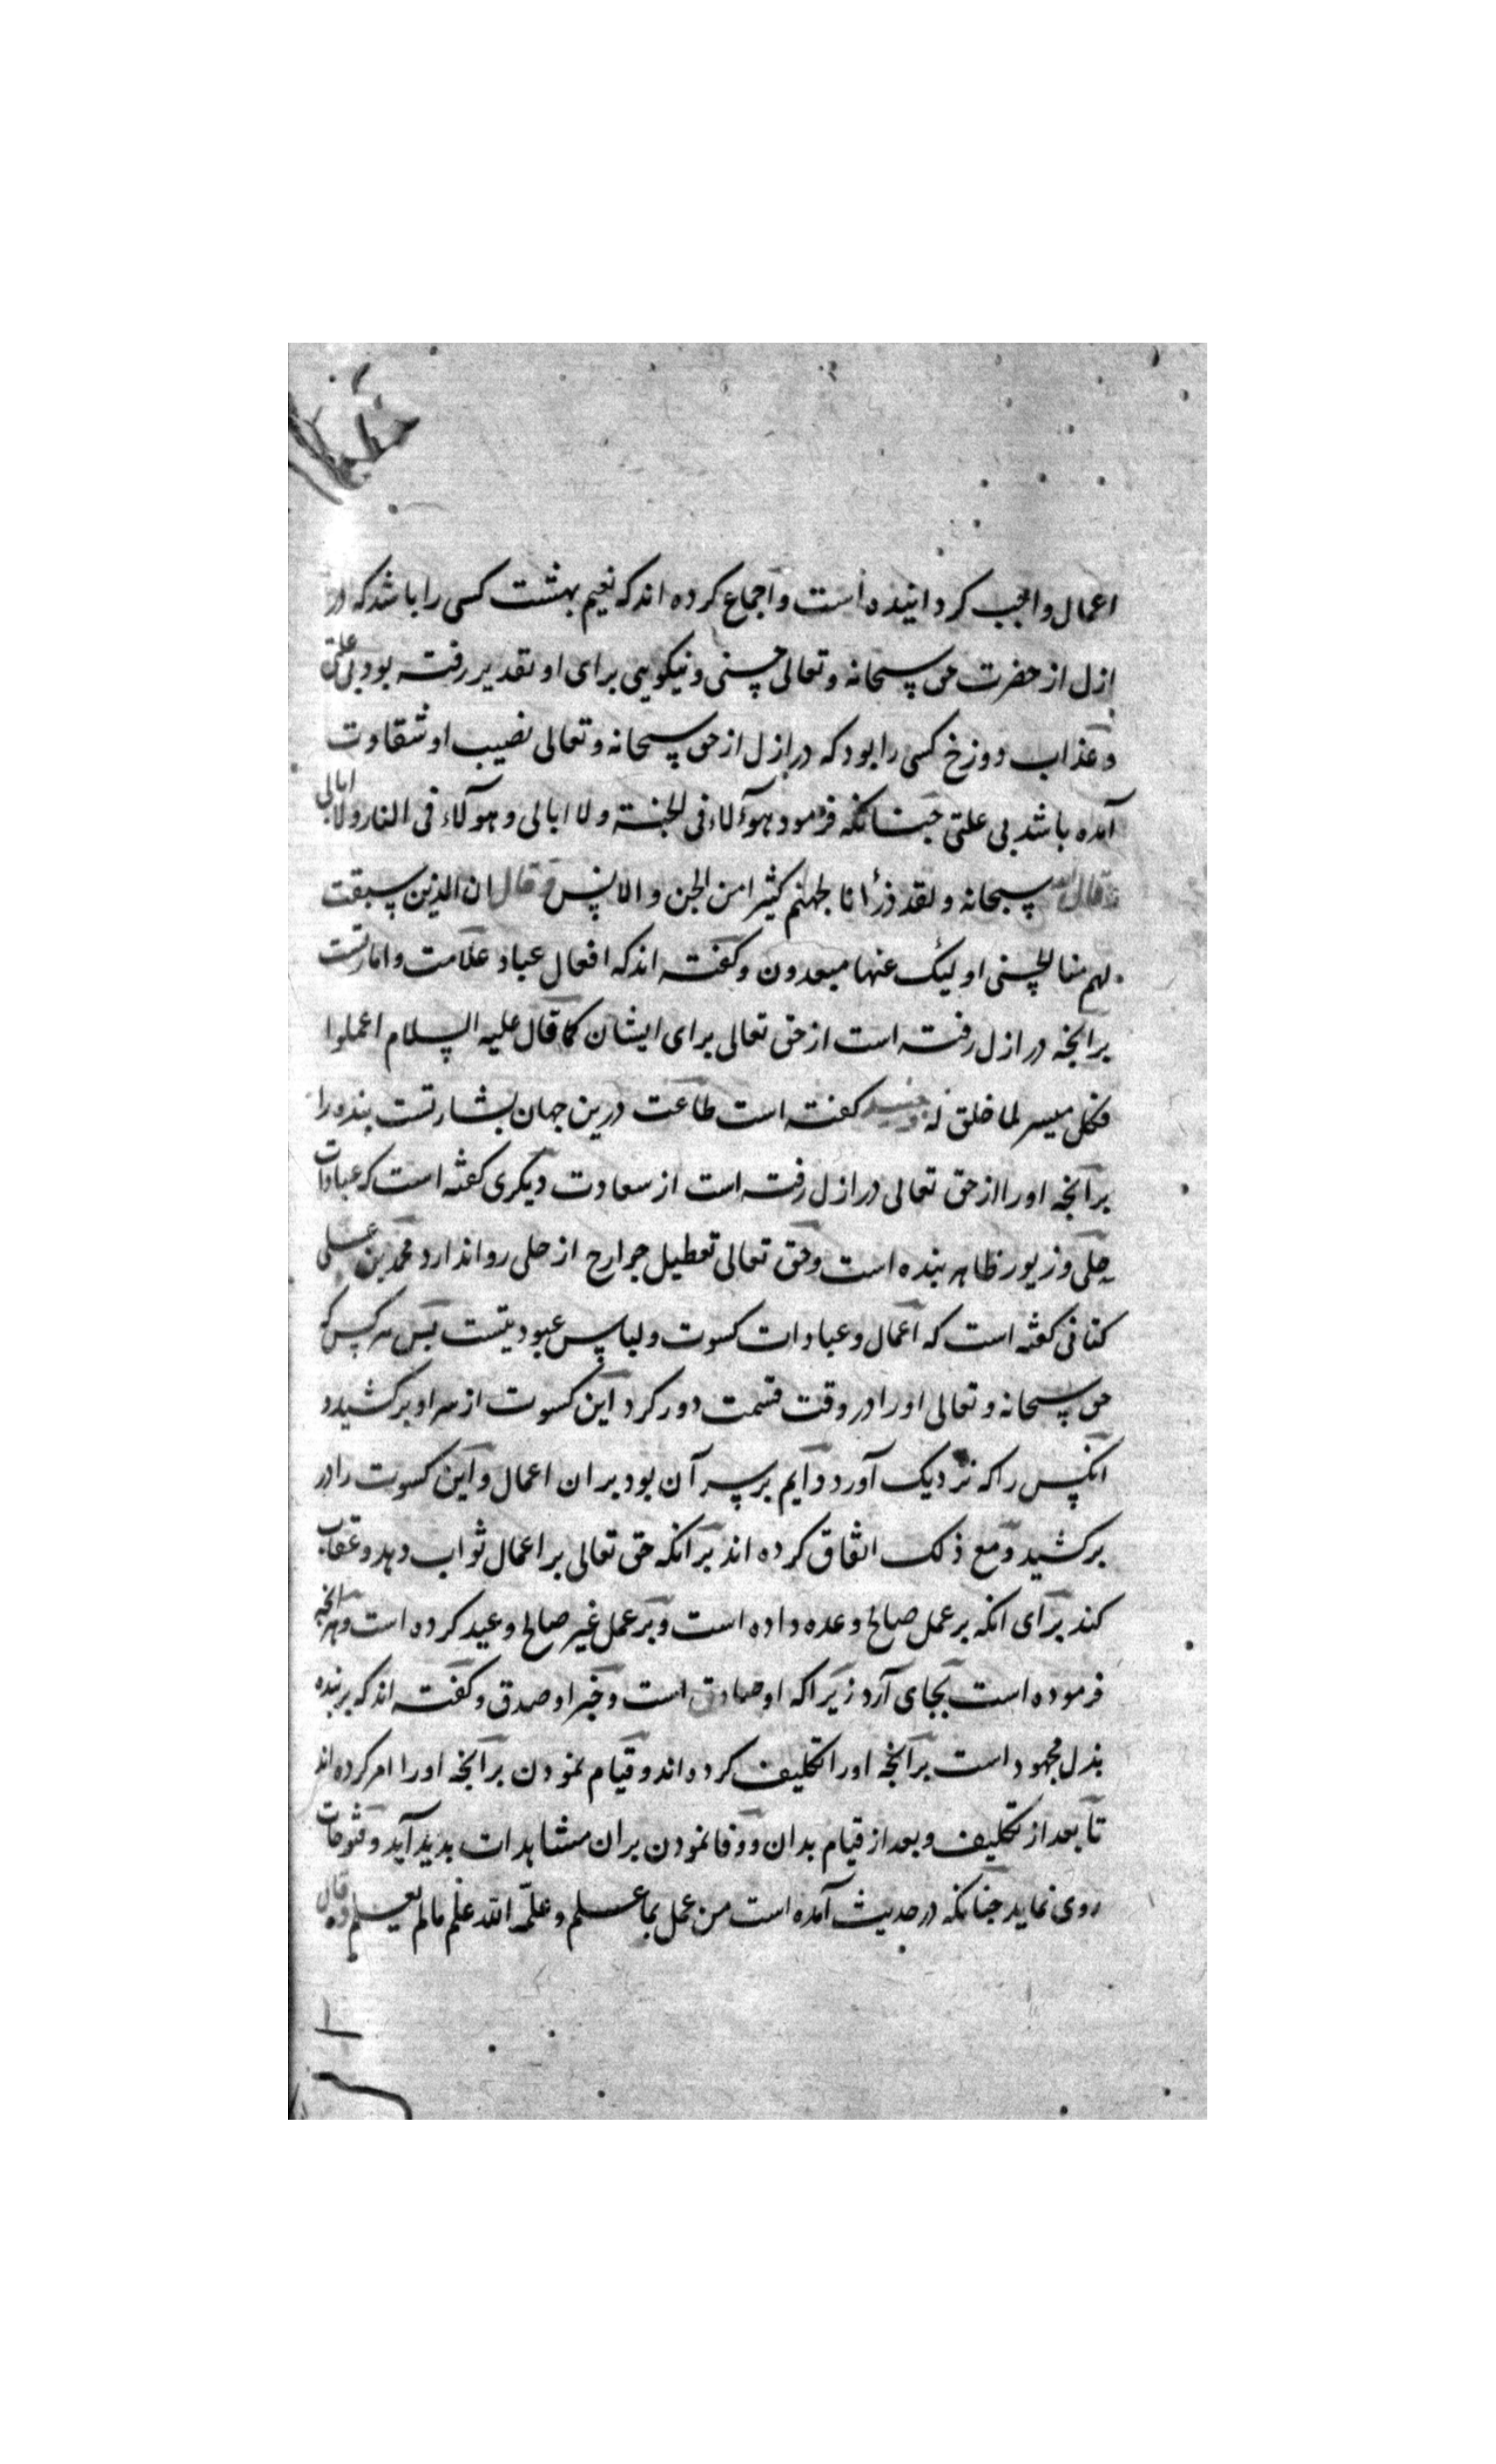 اعمال واجب کردانیده است و اجماع کرده اند که نعیم بهشت کسی را باشد که در
ازل از حضرت حق سبحانه و تعالی حسنی و نیکویی برای او تقدیر رفته بود بی علتی
و عذاب دوزخ کسی را بود که در ازل از حق سبحانه و تعالی نصیب او شقاوت
آمده باشد بی علتی چنانکه فرمود هوآلاء فی الجنة ولا ابالی و هوآلاء فی النار ولا ابالی
قال الله سبحانه و لقد ذرأنا لجهنم کثیرا من الجن و الانس و قال ان الذین سبقت
لهم منا الحسنی اولیک عنها مبعدون و کفته اند که افعال عباد علامت و امارتست
برانجه در ازل رفته است از حق تعالی برای ایشان کما قال علیه السلام اعملوا
فکل میسر لما خلق له جنید کفته است طاعت درین جهان بشارتست بنده را
برانجه او را از حق تعالی در ازل رفته است از سعادت دیکری کفته است که عبادات
حلی و زیور ظاهر بنده است و حق تعالی تعطیل جوارح از حلی روا ندارد محمد بن علی
کتانی کفته است که اعمال و عبادات کسوت و لباس عبودیتست پس هر کس که
حق سبحانه و تعالی او را در وقت قسمت دور کرد این کسوت از سر او برکشید و
انکس را که نزدیک آورد دایم برسر آن بود بران اعمال و این کسوت را در
برکشید و مع ذلک اتفاق کرده اند برانکه حق تعالی بر اعمال ثواب دهد و عقاب
کند برای انکه بر عمل صالح وعده داده است و بر عمل غیر صالح وعید کرده است و هرانجه
فرموده است بجای آرد زیرا که او صادق است و خبر او صدق و کفته اند که بر بنده
بذل مجهود است برانجه او را تکلیف کرده اند و قیام نمودن برانجه او را امر کرده اند
تا بعد از تکلیف و بعد از قیام بدان و وفا نمودن بران مشاهدات بدید آید و فتوحات
روی نماید جنانکه در حدیث آمده است من عمل بما علم و علّمه الله علم مالم یعلم و قال